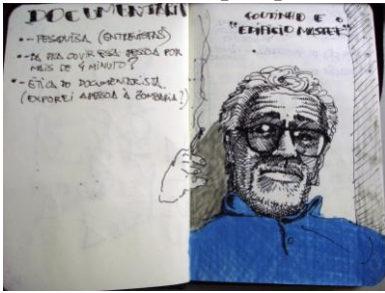 DOCUMENTÁRIO
- PESQUISA (ENTREVISTAS)
- DÁ PRA OUVIR ESSA PESSOA POR
MAIS DE 4 MINUTO?
- ÉTICA DO DOCUMENTARISTA
(EXPOREI A PESSOA À ZOMBARIA?)
COUTINHO E O
"EDIFÍCIO MASTER"